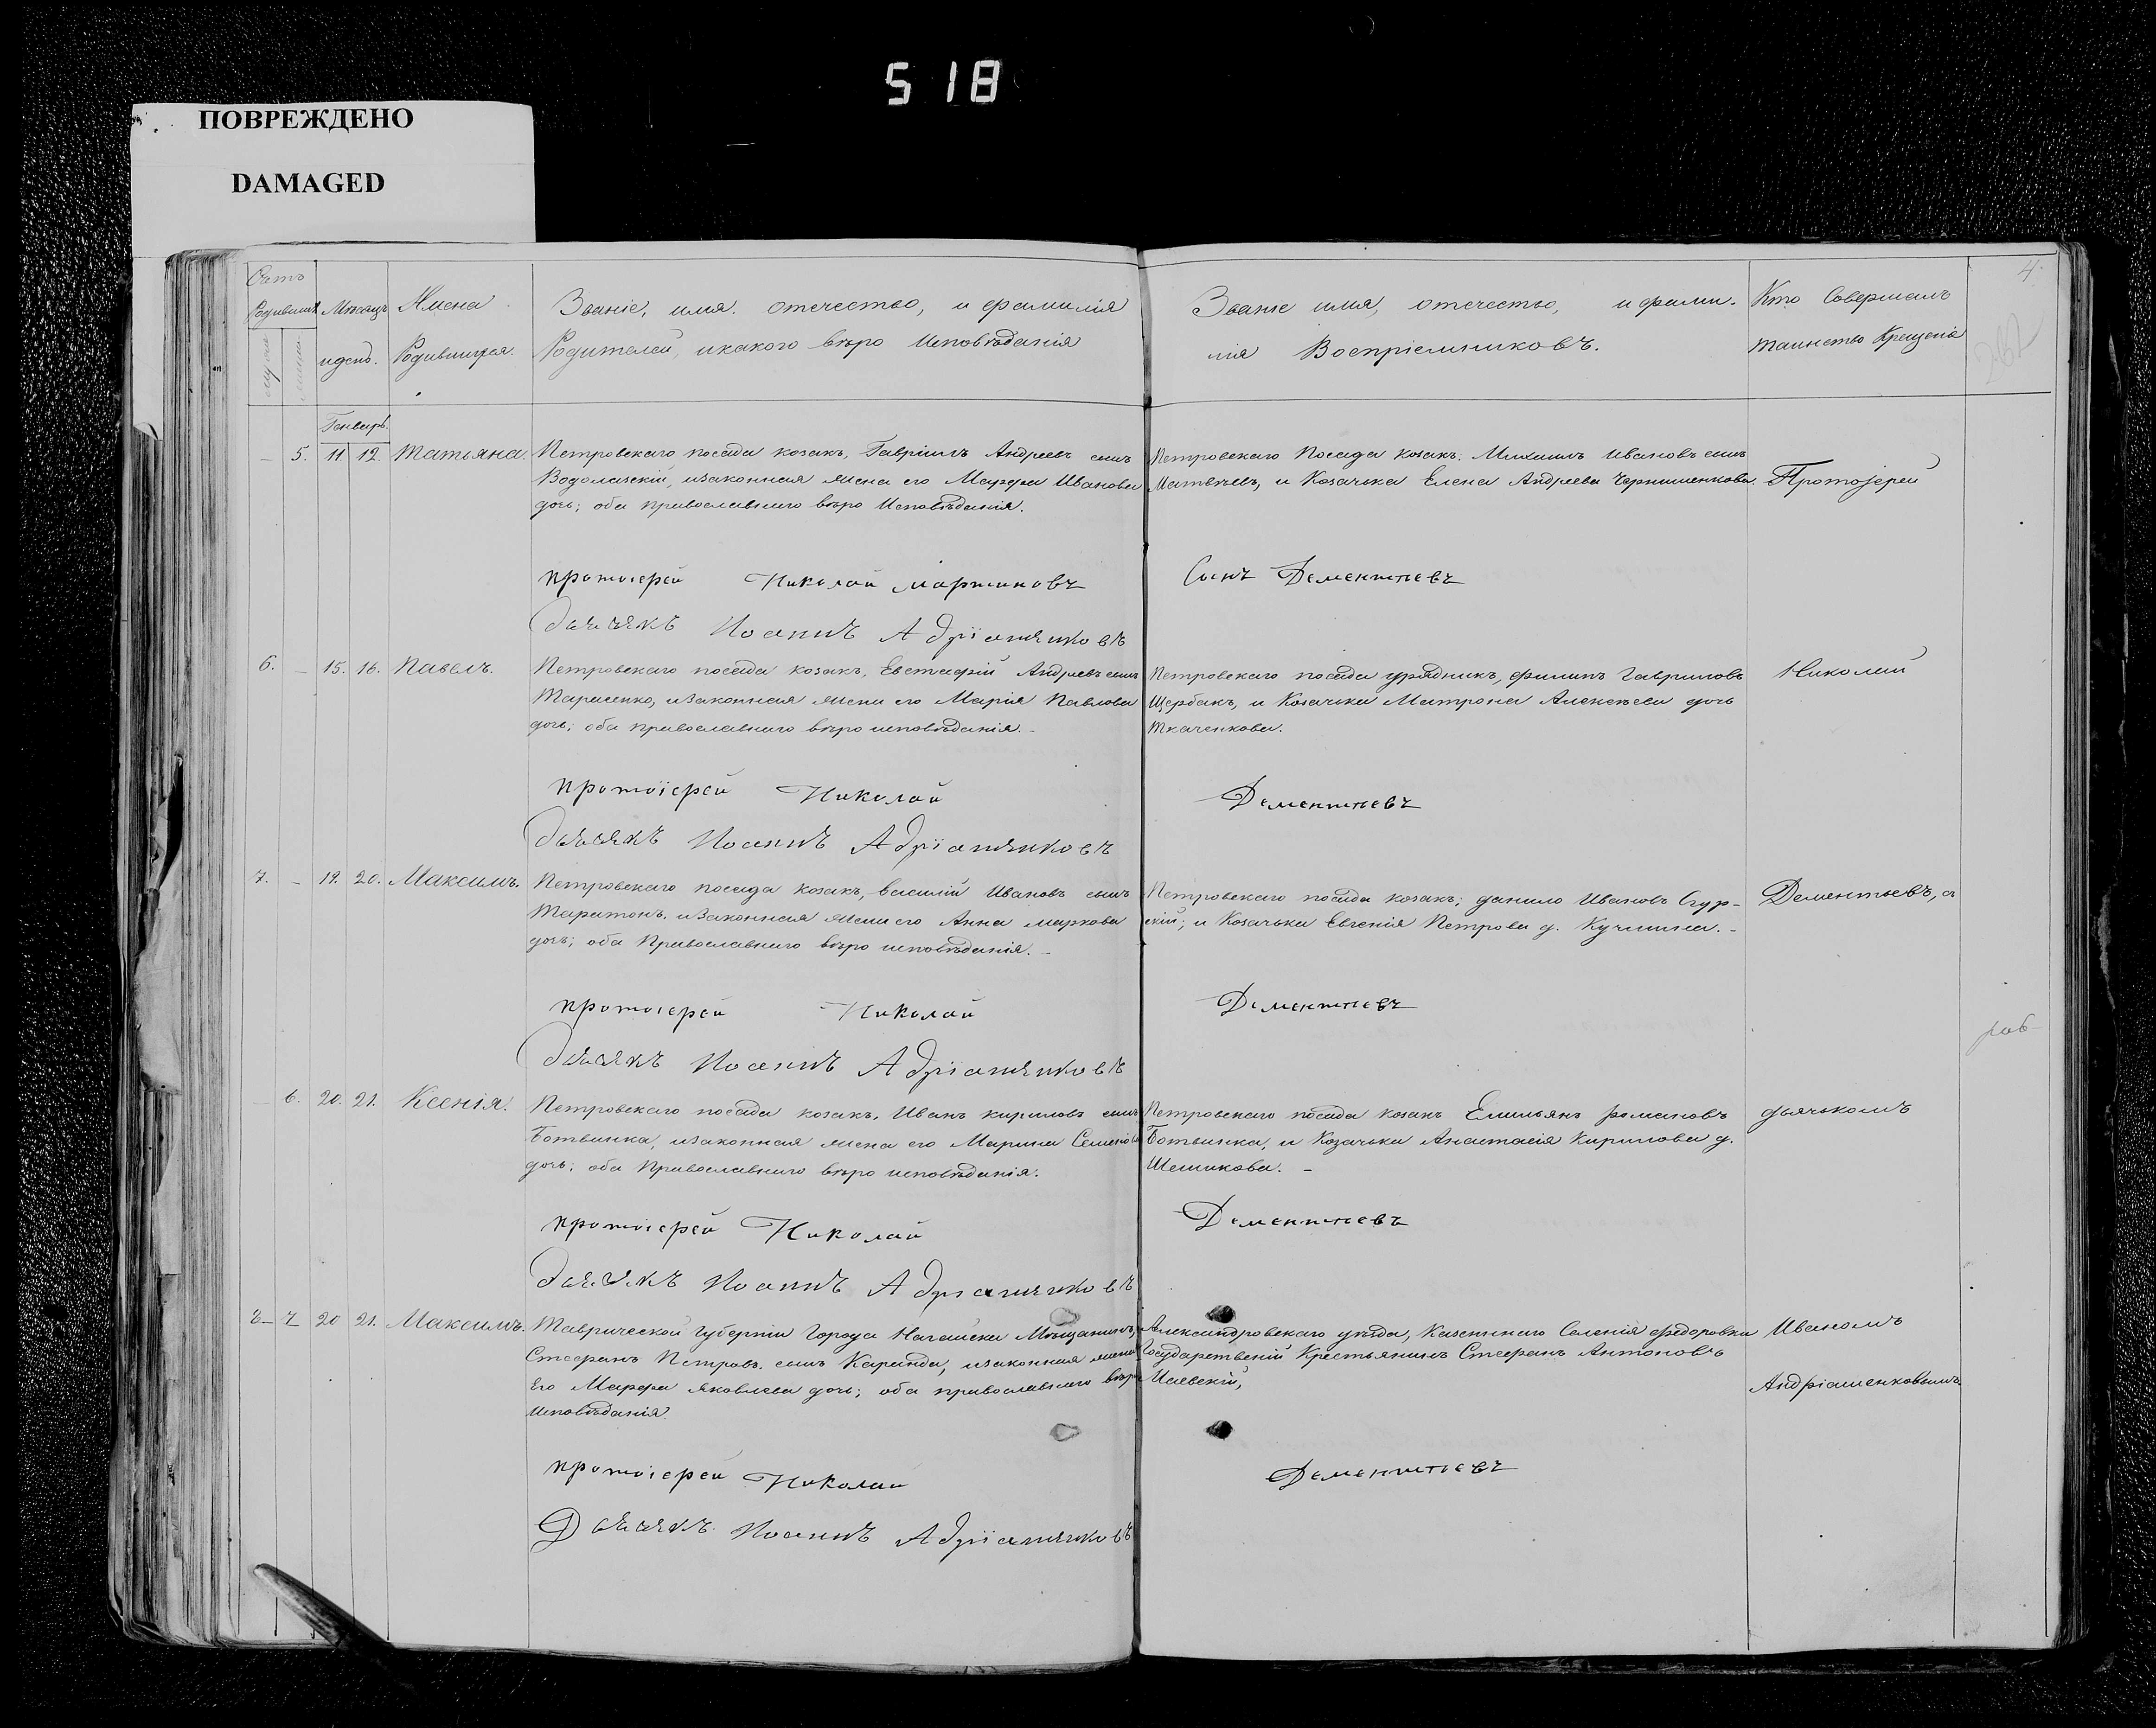 518
ПОВРЕЖДЕНО
DAMAGED
4.
Счетъ Родившихся
Мѣсяцъ и день.
Имена Родившихся.
Званіе, имя, отечество, и фамилія
Родителей, и какого вѣро Исповѣданія
Званіе имя, отечество, и фами-
лія Воспріемниковъ.
Кто Совершалъ
таинство Крещенія
Генваръ.
– 5. 11 12. Татьяна.
Петровскаго посада козакъ, Гавріилъ Андреевъ сынъ
Водолазскій, и законная жена его Марфа Иванова
дочь; оба православнаго вѣро Исповѣданія.
Петровскаго Посада козакъ. Михаилъ Ивановъ сынъ
Матвѣевъ, и Козачька Елена Андреева Чернишенкова.
Протоіерей
протоіерей Николай Мартиновъ
Сынъ Дементьевъ
Дьячекъ Иоаннъ Адріаненковъ
6. – 15. 16. Павелъ.
Петровскаго посада козакъ, Евстафій Андреевъ сынъ
Тарасенко, и законная жена его Марія Павлова
дочь; оба православнаго вѣро исповѣданія.
Петровскаго посада урядникъ, филипъ Гавриловъ
Щербакъ, и Козачька Матрона Алексѣева дочь
Ткаченкова.
Николай
протоіерей Николай
Дементьевъ
Дьячекъ Иоаннъ Адріаненковъ
7. – 19. 20. Максимъ.
Петровскаго посада козакъ, Василій Ивановъ сынъ
Харитонъ, и законная жена его Анна маркова
дочь; оба Православнаго вѣро исповѣданія.
Петровскаго посада козакъ; данило Ивановъ Сур-
скій; и Козачька Евгенія Петрова д.
Дементьевъ, съ
протоіерей Николай
Дементьевъ
Дьячекъ Иоаннъ Адріаненковъ
– 6. 20. 21. Ксенія.
Петровскаго посада козакъ, Иванъ кириловъ сынъ
Ботвинка, и законная жена его Марина Семенова
дочь; оба Православнаго вѣро исповѣданія.
Петровскаго посада козакъ Емильянъ романовъ
Ботвинка, и Козачька Анастасія Кирилова д.
Шешикова.
дьячькомъ
протоіерей Николай
Дементьевъ
Дьячекъ Иоаннъ Адріаненковъ
20 21. Максимъ.
Таврической Губерніи Города Нагайска Мѣщанинъ,
Стефанъ Петровъ сынъ Каранда, и законная жена
Его Марфа яковлева дочь; оба православнаго вѣро
Исповѣданія.
Александровскаго уѣзда, Казеннаго Селенія федоровки
Государственій Крестьянинъ Стефанъ Антоновъ
Иваномъ
Андріаненковымъ.
протоіерей Николай
Дементьевъ
Дьячекъ Иоаннъ Адріаненковъ